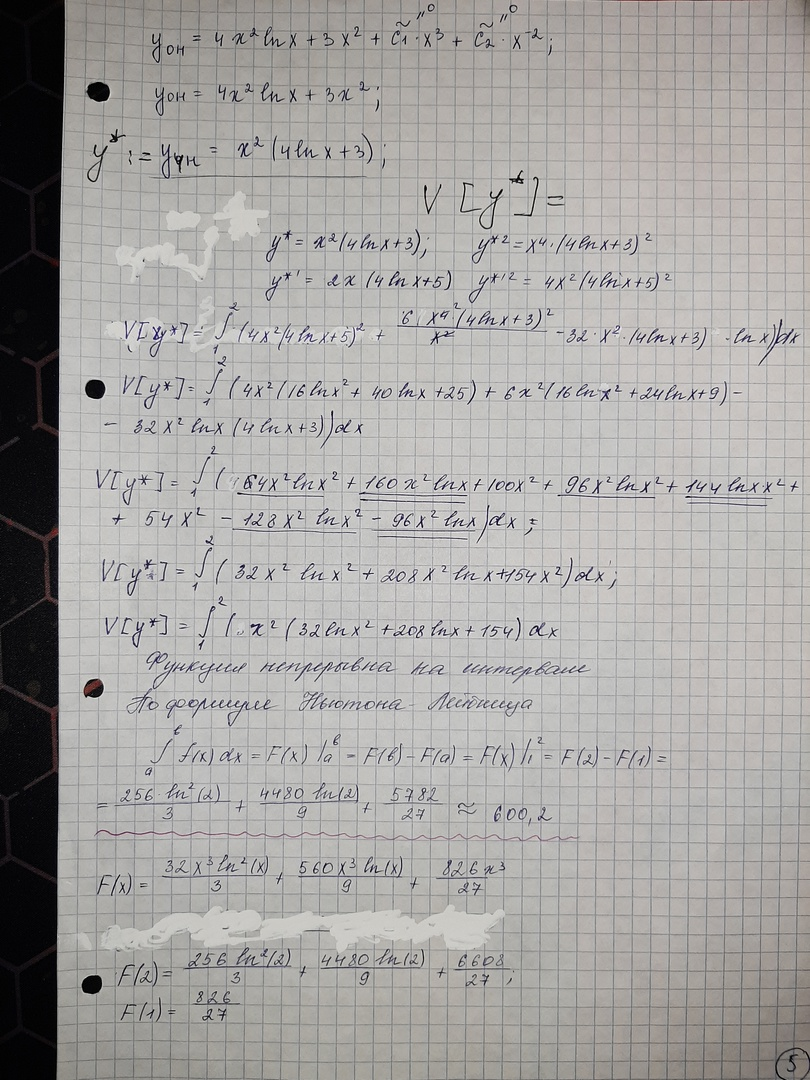 yон = 4x² ln x + 3x² + C̃₁⁼⁰ · x³ + C̃₂⁼⁰ · x⁻²;
yон = 4x² ln x + 3x²;
y* := yчн = x² (4 ln x + 3);
V [y*] =
y* = x² (4 ln x + 3); y*² = x⁴ · (4 ln x + 3)²
y*' = 2x (4 ln x + 5) y*'² = 4x² (4 ln x + 5)²
V[y*] = ∫₁² (4x² (4 ln x + 5)² + 6 x⁴ (4 ln x + 3)² / x² - 32 · x² · (4 ln x + 3) · ln x) dx
V[y*] = ∫₁² (4x² (16 ln x² + 40 ln x + 25) + 6x² (16 ln x² + 24 ln x + 9) -
- 32x² ln x (4 ln x + 3)) dx
V[y*] = ∫₁² (64x² ln x² + 160 x² ln x + 100x² + 96x² ln x² + 144 ln x x² +
+ 54x² - 128x² ln x² - 96x² ln x) dx;
V[y*] = ∫₁² (32x² ln x² + 208x² ln x + 154x²) dx;
V[y*] = ∫₁² ( x² (32 ln x² + 208 ln x + 154) dx
Функция непрерывна на интервале
По формуле Ньютона-Лейбница
∫ₐᵇ f(x) dx = F(x) |ₐᵇ = F(b) - F(a) = F(x) |₁² = F(2) - F(1) =
= 256 · ln²(2) / 3 + 4480 ln(2) / 9 + 5782 / 27 ≈ 600,2
F(x) = 32x³ ln²(x) / 3 + 560x³ ln(x) / 9 + 826x³ / 27
F(2) = 256 ln²(2) / 3 + 4480 ln(2) / 9 + 6608 / 27;
F(1) = 826 / 27
5